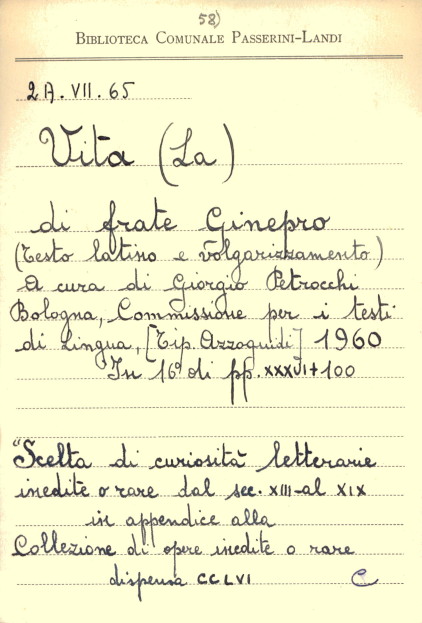 58)
BIBLIOTECA COMUNALE PASSERINI-LANDI
2A. VII. 65
Vita (La)
di frate Ginepro
(Testo latino e volgarizzamento)
A cura di Giorgio Petrocchi
Bologna, Commissione per i testi
di Lingua, [Tip. Azzoguidi] 1960
In 16° di pp. XXXVI+100
"Scelta di curiosità letterarie
inedite o rare dal sec. XIII-al XIX
in appendice alla
Collezione di opere inedite o rare
dispensa CCLVI C